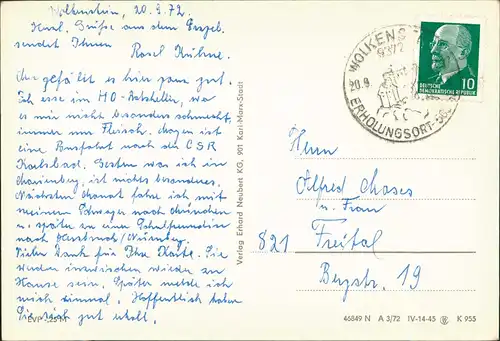 Wolkenstein, 20.9.72
Herzl. Grüße aus dem Erzgeb.
sendet Ihnen
Rosel Kühne.
Mir gefällt es hier ganz gut.
Ich esse im HO-Ratskeller, wo
es mir nicht besonders schmeckt,
immer nur Fleisch. Morgen ist
eine Busfahrt nach der CSR
Karlsbad. Gestern war ich in
Marienberg, ist nichts besonderes.
Nächsten Monat fahre ich mit
meinem Schwager nach München
u. später zu einer Schulfreundin
nach /Nürnberg.
Vielen Dank für Ihre Karte. Sie
werden inzwischen wieder zu
Hause sein. Später melde ich
mich einmal. Hoffentlich haben
Sie sich gut erholt.
EVP
Verlag Erhard Neubert KG, 901 Karl-Marx-Stadt
WOLKENST
9372
20.9.
ERHOLUNGSORT
DEUTSCHE
DEMOKRATISCHE REPUBLIK
10
Herrn
Alfred Moses
u. Frau
821 Freital
Bergstr. 19
46849 N A 3/72 IV-14-45 K 955